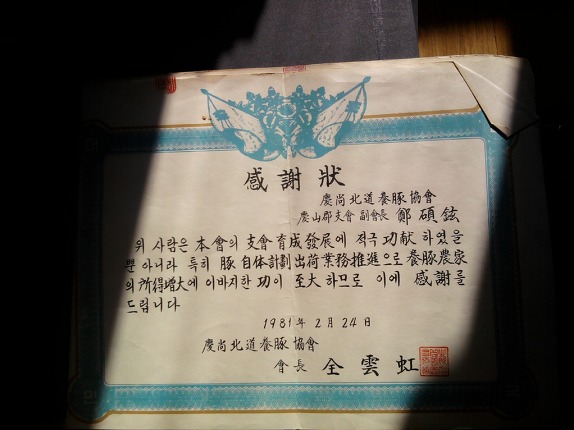 感謝狀
慶尚北道養豚協會
慶山郡支會 副會長 鄭碩鉉
위 사람은 本會의 支會育成發展에 적극 功献하였을
뿐 아니라 특히 豚自体計劃出荷業務推進으로 養豚農家
의 所得增大에 이바지한 功이 至大하므로 이에 感謝를
드립니다
1981年 2月 24日
慶尚北道養豚協會
會長 全雲虹